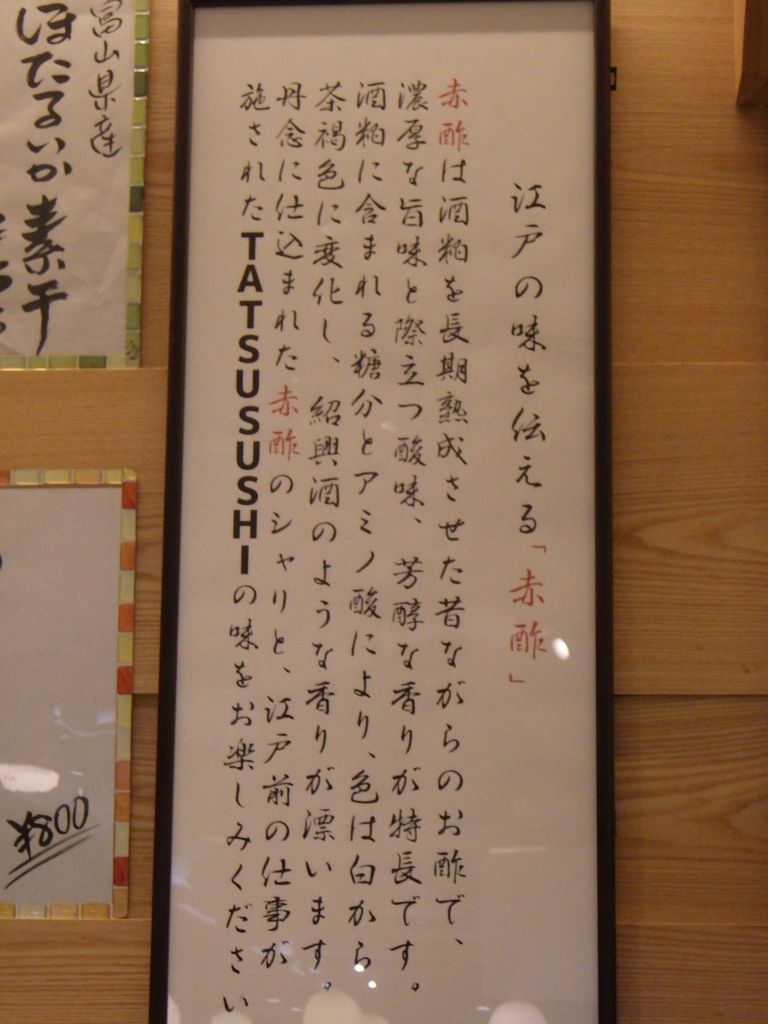 江戸の味を伝える「赤酢」
赤酢は酒粕を長期熟成させた昔ながらのお酢で、
濃厚な旨味と際立つ酸味、芳醇な香りが特長です。
酒粕に含まれる糖分とアミノ酸により、色は白から
茶褐色に変化し、紹興酒のような香りが漂います。
丹念に仕込まれた赤酢のシャリと、江戸前の仕事が
施されたTATSUSUSHIの味をお楽しみください
富山県産
ほたるいか素干
¥800